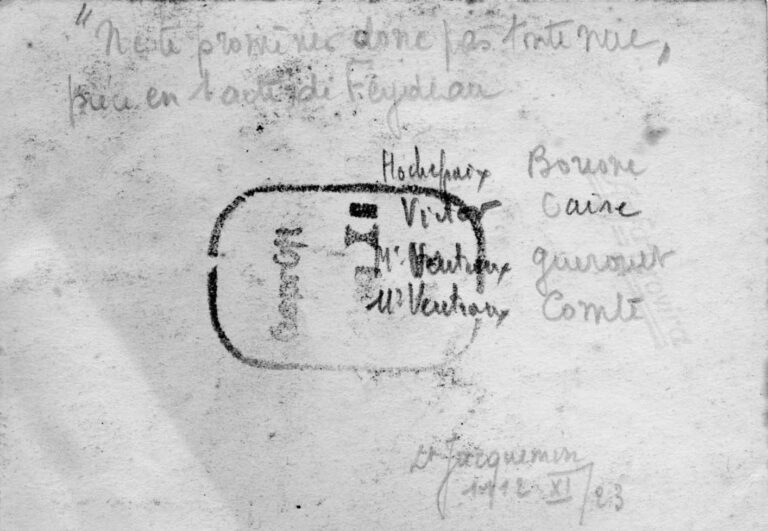 "Ne te promènes donc pas toute nue,"
pièce en 1 acte de Feydeau
Hochepaix Bourone
Victor Caire
Mr Ventroux
Me Ventroux Comte
Dr Jacquemin
XI/23